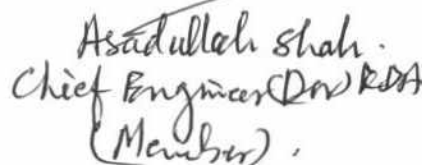 Asadullah Shah.
Chief Engineer(Dev) RDA
(Member).